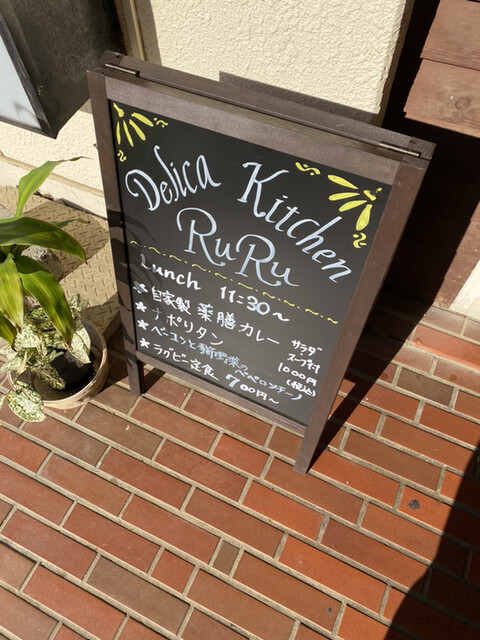 Delica Kitchen
RuRu
Lunch 11:30〜
★自家製 薬膳カレー
★ナポリタン
★ベーコンと 野菜の ペペロンチーノ
★ラグビー定食 700円〜
サラダ
スープ付
1000円
(税込)